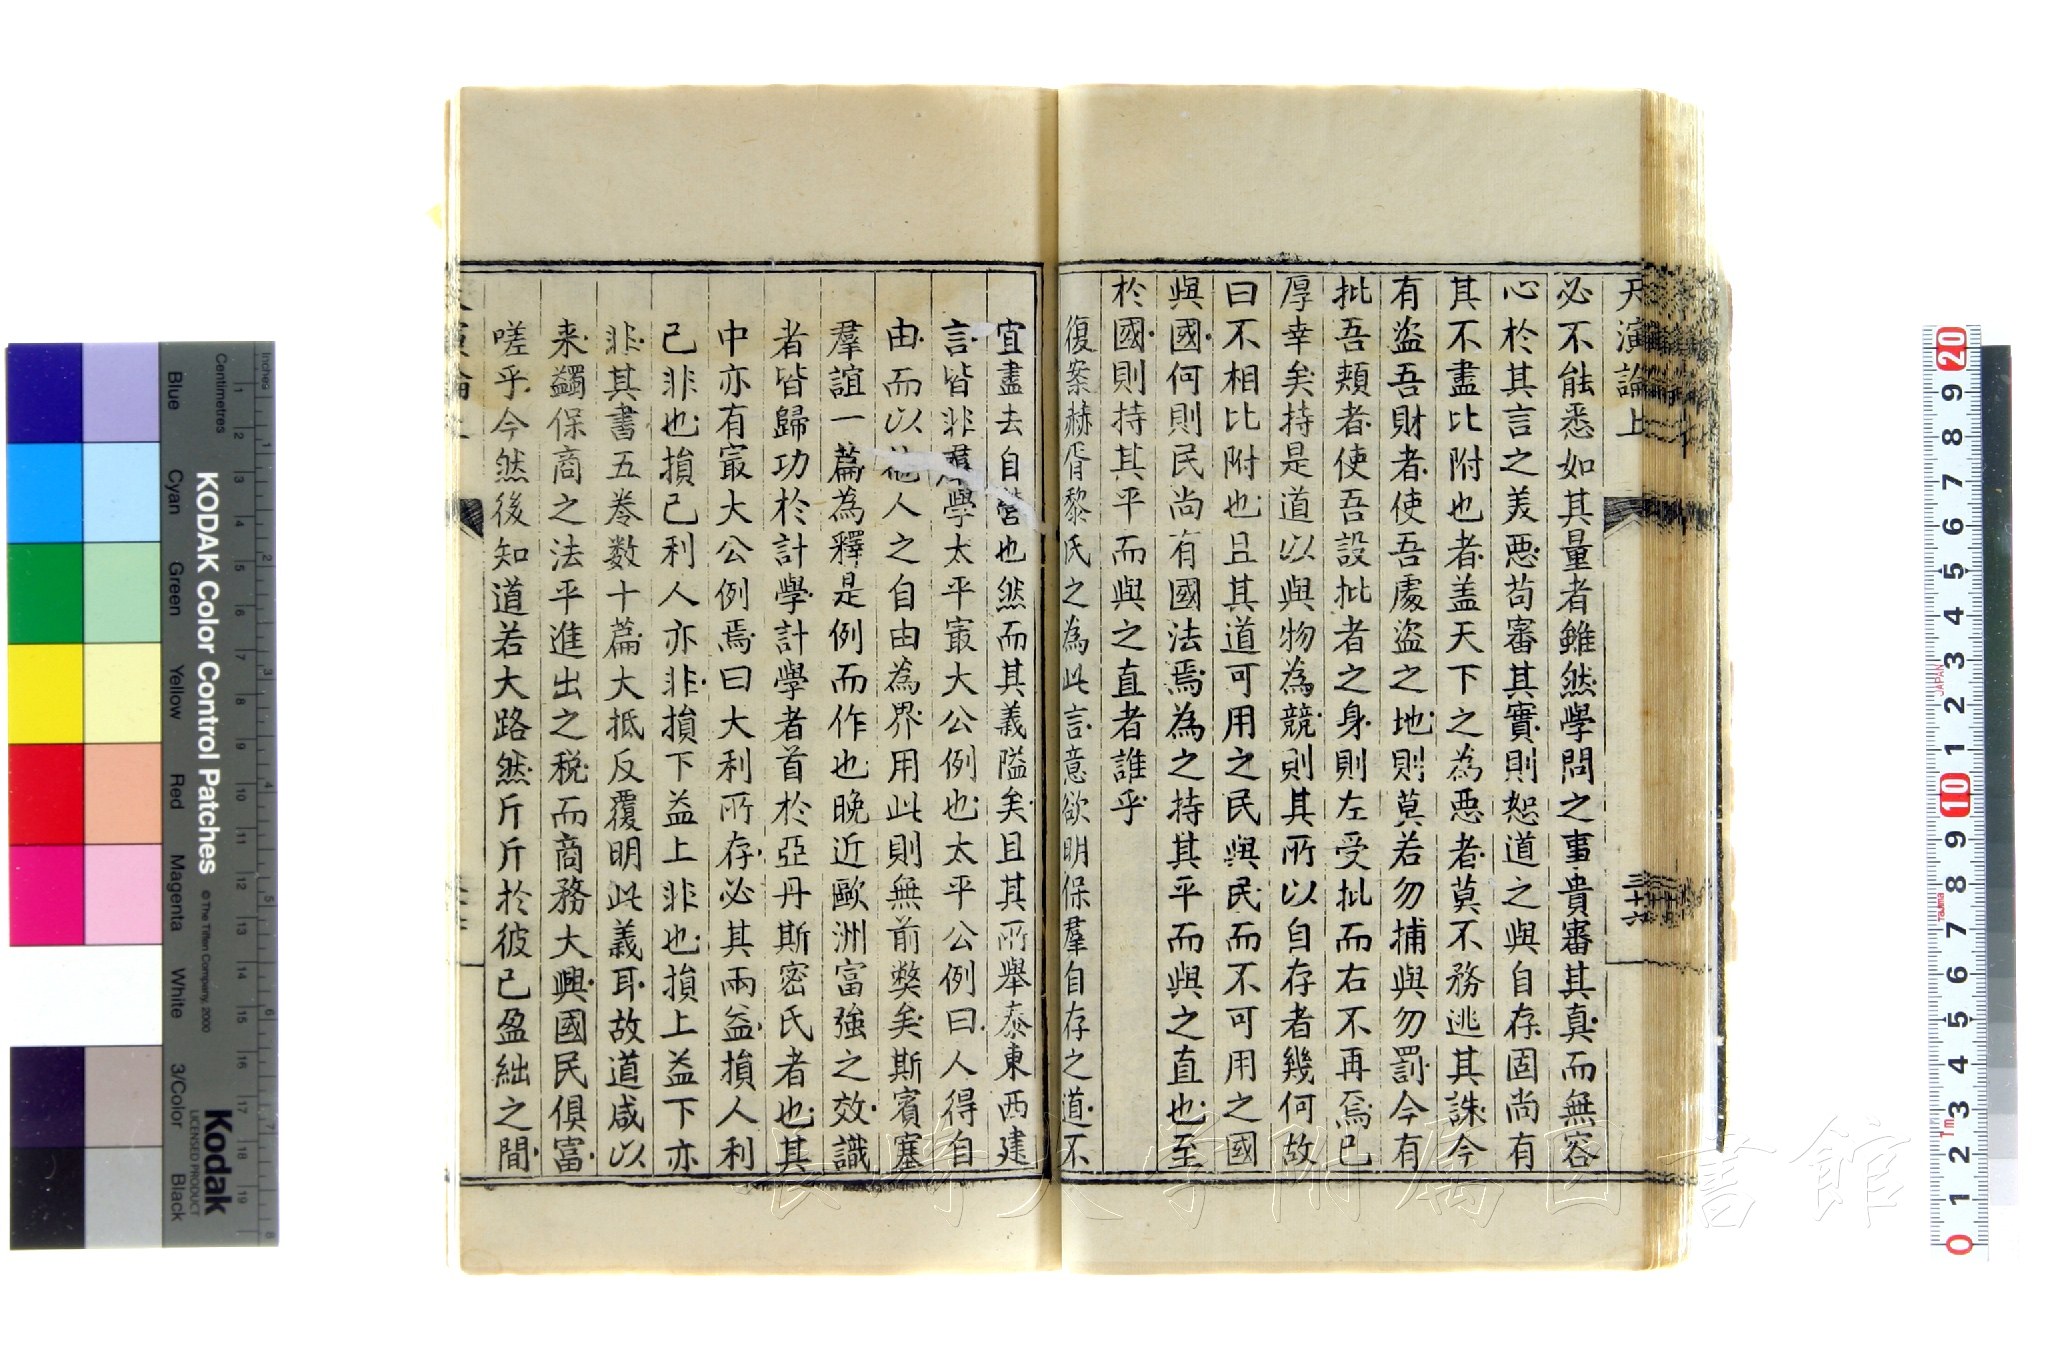 天演論上
三十六
必不能悉如其量者雖然學問之事貴審其真而無容
心於其言之美惡苟審其實則恕道之與自存固尚有
其不盡比附也者盖天下之為惡者莫不務逃其誅今
有盜吾財者使吾處盜之地則莫若勿捕與勿罰今有
批吾頰者使吾設批者之身則左受批而右不再焉已
厚幸矣持是道以與物為競則其所以自存者幾何故
曰不相比附也且其道可用之民與民而不可用之國
與國何則民尚有國法焉為之持其平而與之直也至
於國則持其平而與之直者誰乎
復案赫胥黎氏之為此言意欲明保羣自存之道不
宜盡去自營也然而其義隘矣且其所舉泰東西建
言皆非羣學太平冣大公例也太平公例曰人得自
由而以他人之自由為界用此則無前弊矣斯賓塞
羣誼一篇為釋是例而作也晚近歐洲富強之效識
者皆歸功於計學計學者首於亞丹斯密氏者也其
中亦有冣大公例焉曰大利所存必其兩益損人利
己非也損己利人亦非損下益上非也損上益下亦
非其書五卷数十篇大抵反覆明此義耳故道咸以
来蠲保商之法平進出之税而商務大興國民俱富
嗟乎今然後知道若大路然斤斤於彼己盈絀之間
KODAK Color Control Patches
© The Tiffen Company, 2000
Kodak
LICENSED PRODUCT
Inches
Centimetres
Blue
Cyan
Green
Yellow
Red
Magenta
White
3/Color
Black
JAPAN
Tajima
長崎大学附属図書館